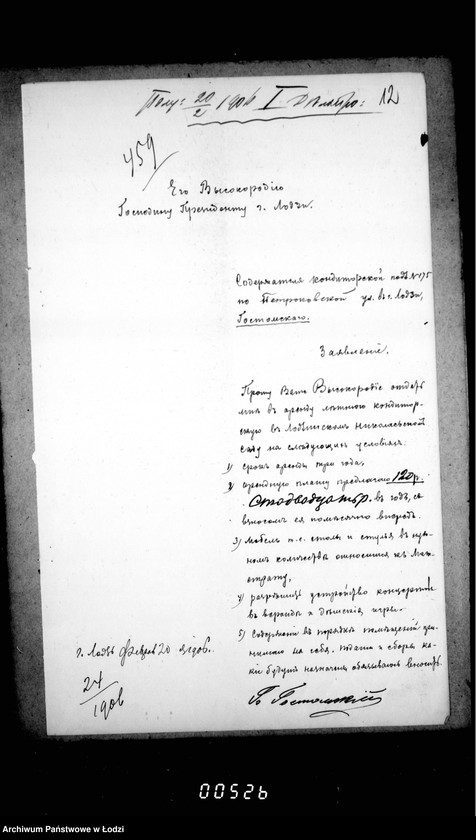 Полу: 20/2 1906 I 12
459
Его Высокородію
Господину Президенту г. Лодзи.
Содержателя кондиторской подъ № 175
по Петроковской ул. въ г. Лодзи,
Гостомскаго.
Заявленіе.
Прошу Ваше Высокородіе отдать
мнѣ въ аренду лѣтнюю кондитор-
скую въ Лодзинскомъ Николаевскомъ
саду на слѣдующихъ условіяхъ:
1) срокъ аренды три года,
2) арендную плату предлагаю 120 р.
Стодвадцать р. въ годъ, со
взносомъ ея помѣсячно впередъ.
3) Мебель т.е. столы и стулья въ нуж-
номъ количествѣ относится къ Маги-
страту,
4) разрѣшить устройство концертовъ
въ верандѣ и дѣтскія игры.
5) Содержаніе въ порядкѣ помѣщеній при-
нимаю на себя. подати и сборы ка-
кіе будутъ назначены обязываюсь вносить.
г. Лодзь Февраля 20 дня 1906 г.
24/1906
Гостомскій
00526
Archiwum Państwowe w Łodzi